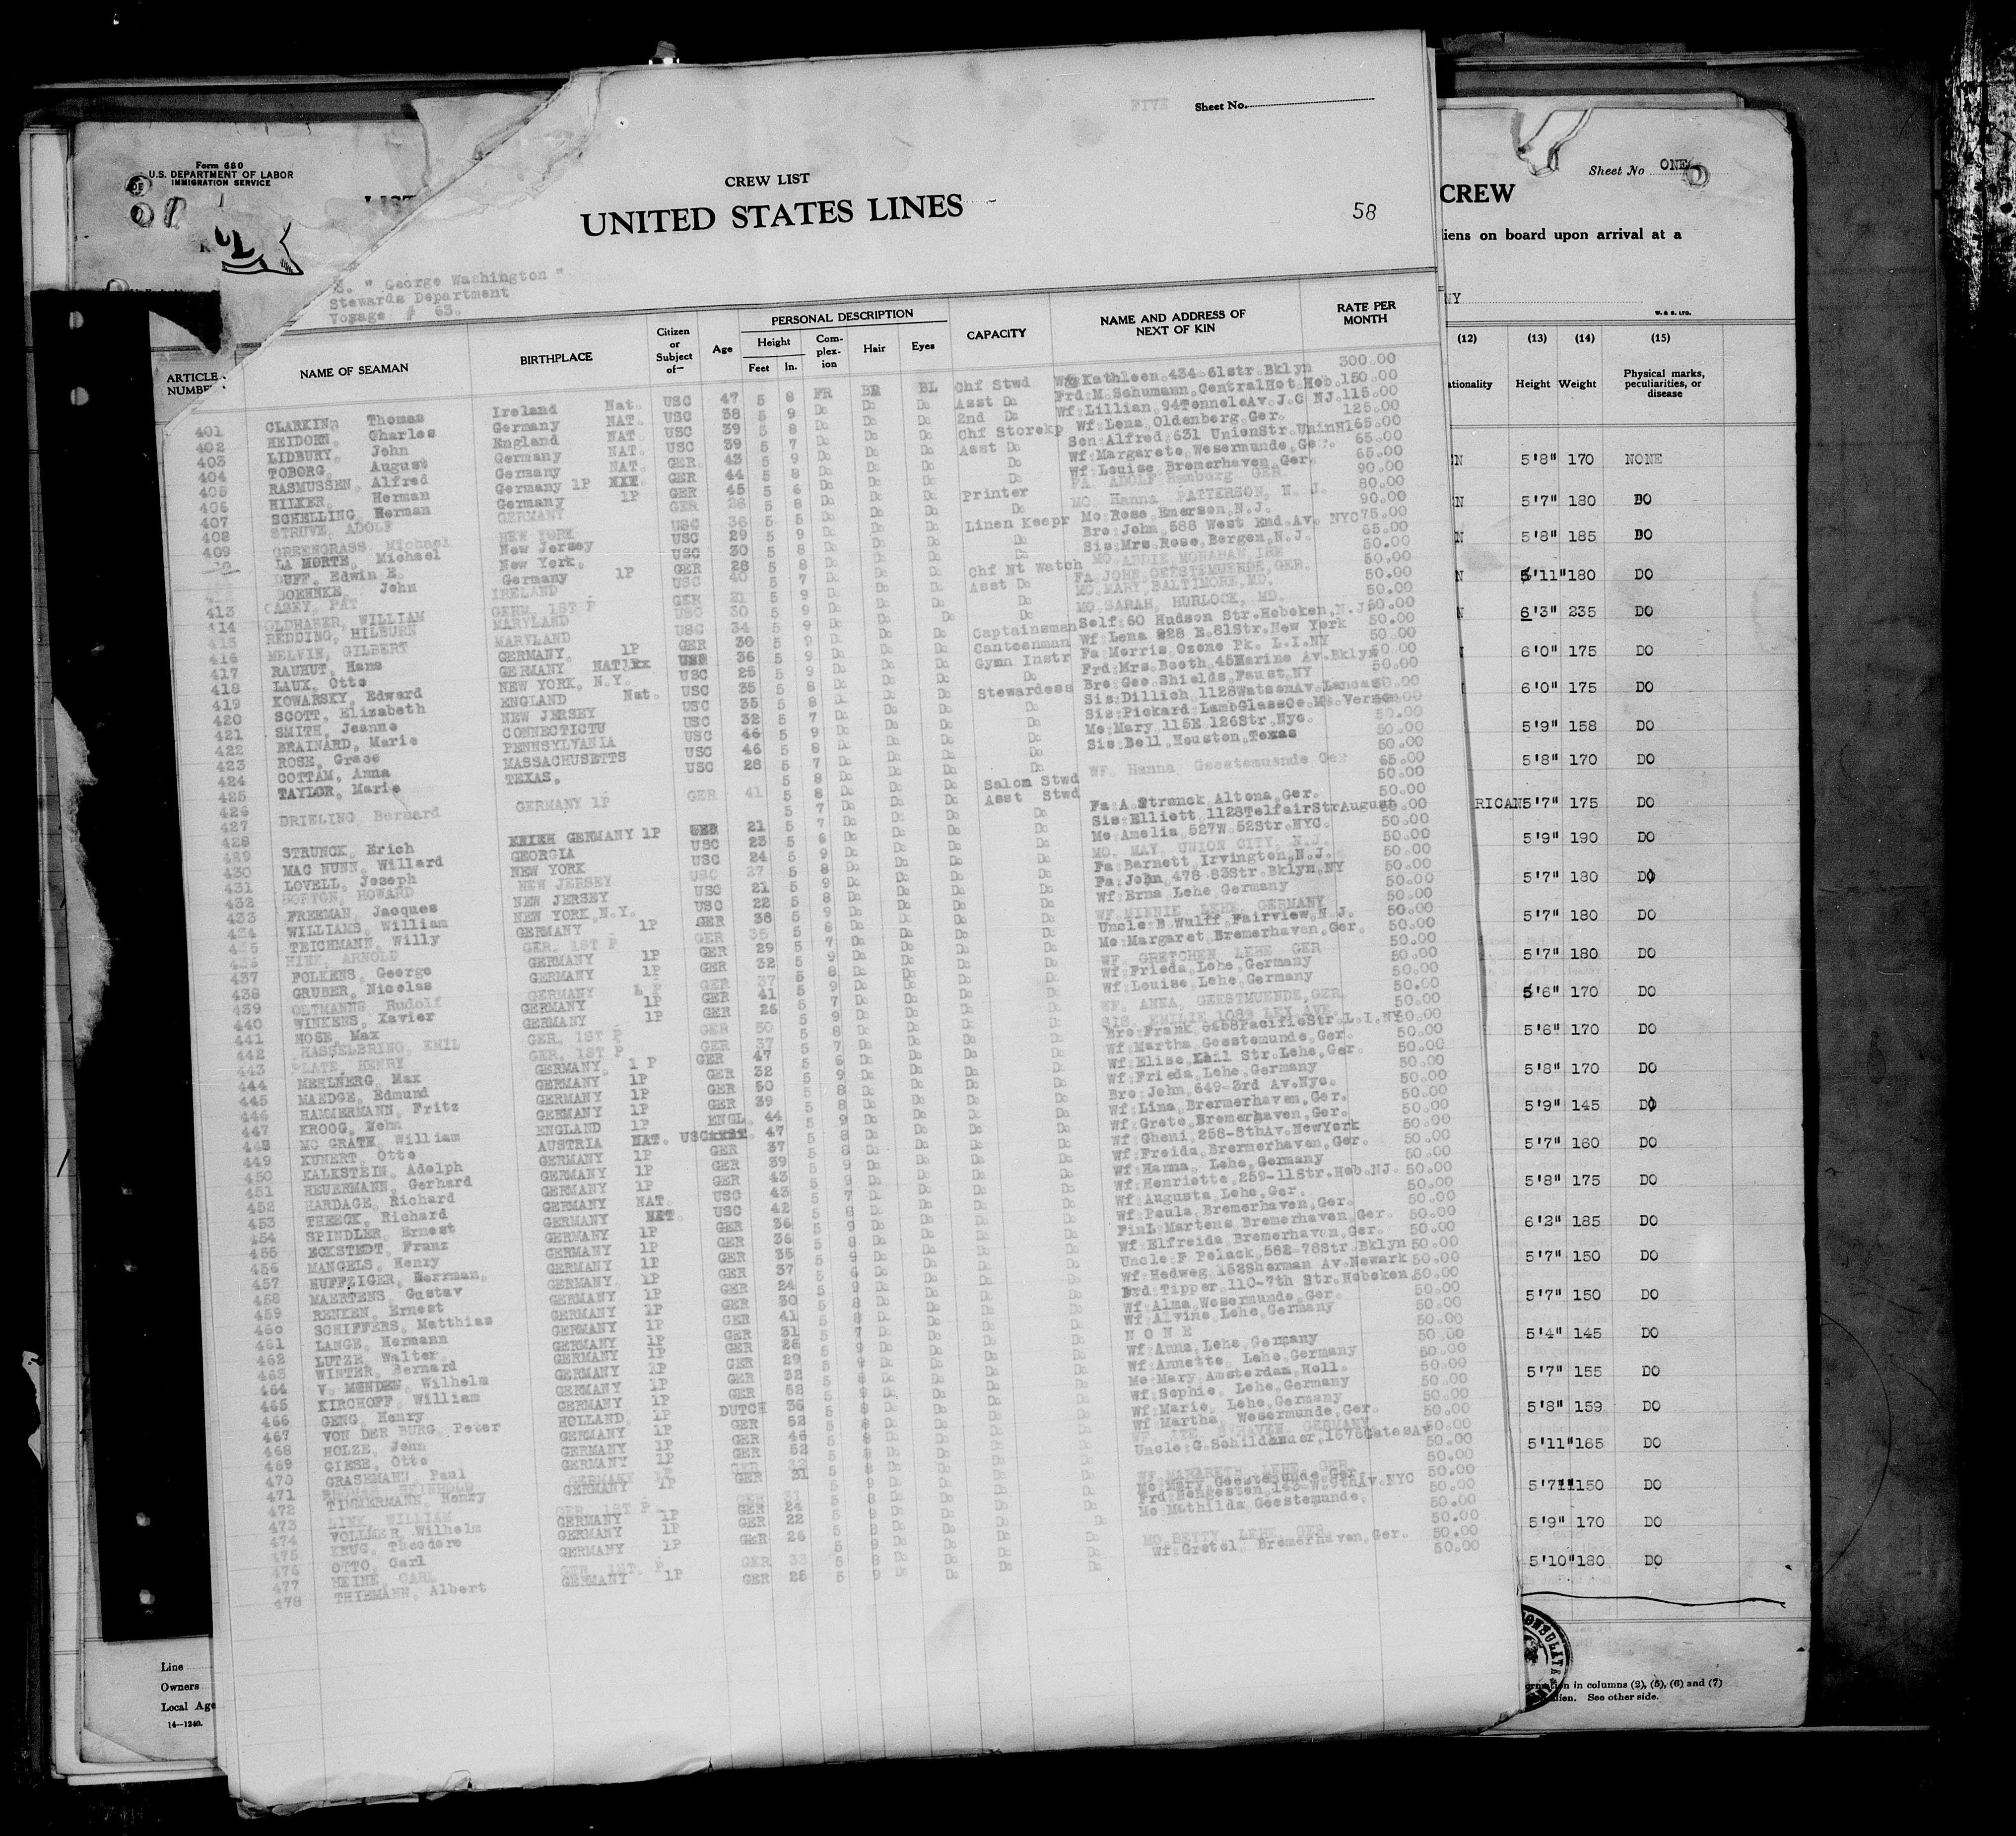 FIVE Sheet No.
Form 680
U.S. DEPARTMENT OF LABOR
IMMIGRATION SERVICE
Sheet No ONE
CREW LIST
UNITED STATES LINES
58
CREW
iens on board upon arrival at a
NY
W. & S. LTD.
S. " George Washington "
Stewards Department
Voyage # 63.
ARTICLE NUMBER
NAME OF SEAMAN
BIRTHPLACE
Citizen or Subject of—
Age
PERSONAL DESCRIPTION
Height
Feet In.
Com-plex-ion
Hair
Eyes
CAPACITY
NAME AND ADDRESS OF NEXT OF KIN
RATE PER MONTH
(12) (13) (14) (15)
ationality Height Weight Physical marks, peculiarities, or disease
401 CLARKIN, Thomas Ireland Nat. USC 47 5 8 FR BR BL Chf Stwd Wf Kathleen 434-61str Bklyn 300.00
402 HEIDORN, Charles Germany NAT. USC 38 5 9 Do Do Do Asst Do Frd:M.Schumann,CentralHot Hob. 150.00
403 LIDBURY, John England NAT. USC 39 5 8 Do Do Do 2nd Do Wf:Lillian,94TonneleAv.J.C NJ. 115.00
404 TOBORG, August Germany NAT. USC 39 5 7 Do Do Do Chf Storekp Wf:Lena Oldenberg Ger. 125.00
405 RASMUSSEN, Alfred Germany NAT. GER. 43 5 9 Do Do Do Asst Do Son:Alfred 631 UnionStr.UninH 165.00
406 HILKER, Herman Germany 1P GER 44 5 8 Do Do Do Do Wf:Margarete, Wesermunde, Ger. 65.00
407 SCHELLING Herman Germany 1P GER 45 5 6 Do Do Do Do Wf:Louise, Bremerhaven, Ger. 65.00
408 STRUVE, ADOLF GERMANY GER 26 5 8 Do Do Do Printer FA. ADOLF Hamburg GER 90.00
409 GREENGRASS Michael NEW YORK USC 36 5 5 Do Do Do Do MO. Hanna PATTERSON, N. J. 80.00
LA MORTE, Michael New Jersey USC 29 5 9 Do Do Do Linen Keepr Mo:Rose,Emerson,N.J. 90.00
DUFF, Edwin E. New York. USC 30 5 8 Do Do Do Do Bro:John,588 West End.Av. NYC 75.00
BOEHNKE, John Germany 1P GER 28 5 8 Do Do Do Do Sis:Mrs.Rose,Bergen,N.J. 65.00
413 CASEY, PAT IRELAND USC 40 5 7 Do Do Do Chf Nt Watch MO. ADDIE MONAHAN, IRE 50.00
414 OLDHABER, WILLIAM GERM. 1ST P GER 21 5 9 Do Do Do Asst Do FA.JOHN,GEESTEMUENDE,GER. 50.00
415 REDDING, HILBURN MARYLAND USC 30 5 9 Do Do Do Do MO.MARY,BALTIMORE,MD. 50.00
416 MELVIN, GILBERT MARYLAND USC 34 5 9 Do Do Do Do MO.SARAH, HURLOCK, MD. 50.00
417 RAUHUT, Hans GERMANY, 1P GER 30 5 9 Do Do Do Captainsman Self:60 Hudson Str.Hoboken,N.J. 50.00
418 LAUX, Otto GERMANY NAT USC 36 5 9 Do Do Do Canteenman Wf:Lena 228 E.81Str.New York 50.00
419 KOWARSKY, Edward NEW YORK, N.Y. USC 25 5 9 Do Do Do Gymn Instr Fa:Morris,Ozone Pk. L.I.NY 50.00
420 SCOTT, Elizabeth ENGLAND Nat. USC 35 5 8 Do Do Do Stewardess Frd:Mrs.Booth,45Marine Av.Bklyn 50.00
421 SMITH, Jeanne NEW JERSEY USC 35 5 8 Do Do Do Do Bro:Geo Shields,Faust,NY 50.00
422 BRAINARD, Marie CONNECTICTU USC 32 5 7 Do Do Do Do Sis:Dillich,1128WatsonAv,Lancas 50.00
423 ROSE, Grace PENNSYLVANIA USC 46 5 9 Do Do Do Do Sis:Pickard:LambGlassCo.Mt.Vernon
424 COTTAM, Anna MASSACHUSETTS USC 46 5 8 Do Do Do Do Mo:Mary,115E.126Str.Nyc. 50.00
425 TAYLOR, Marie TEXAS. USC 28 5 7 Do Do Do Do Sis:Bell,Houston,Texas 50.00
426
427 DRIELING, Bernard GERMANY 1P GER 41 5 8 Do Do Do Salon Stwd WF. Hanna, Geestemuende Ger 65.00
428
429 STRUNCK, Erich GERMANY 1P GER 21 5 7 Do Do Do Asst Stwd Fa:A.Strunck Altona,Ger. 50.00
430 MAC NUNN, Willard GEORGIA USC 23 5 6 Do Do Do Do Sis:Elliett,1128TelfairStrAugust 50.00
431 LOVELL, Joseph NEW YORK USC 24 5 9 Do Do Do Do Mo:Amelia,527W.52Str.NYC. 50.00
432 HORTON, HOWARD NEW JERSEY USC 27 5 8 Do Do Do Do MO. MAY, UNION CITY, N.J. 50.00
433 FREEMAN, Jacques NEW JERSEY USC 21 5 9 Do Do Do Do Fa:Barnett Irvington,N.J. 50.00
434 WILLIAMS, William NEW YORK,N.Y. USC 22 5 8 Do Do Do Do Fa:John,478-83Str.Bklyn,NY 50.00
435 TEICHMANN, Willy GERMANY 1P GER 38 5 9 Do Do Do Do Wf:Erna Lehe Germany 50.00
436 HINK, ARNOLD GER. 1ST P GER 35 5 8 Do Do Do Do WF.MINNIE, LEHE, GERMANY 50.00
437 FOLKENS, George GERMANY 1P GER 29 5 7 Do Do Do Do Uncle:B Wulff,Fairview,N.J. 50.00
438 GRUBER, Nicolas GERMANY 1P GER 32 5 9 Do Do Do Do Mo:Margaret,Bremerhaven,Ger. 50.00
439 OLTMANNS Rudolf GERMANY 1 P GER 37 5 8 Do Do Do Do WF. GRETCHEN, LEHE, GER 50.00
440 WINKENS, Xavier GERMANY 1P GER 41 5 9 Do Do Do Do Wf:Frieda,Lehe,Germany 50.00
441 HOSE, Max GERMANY 1P GER 25 5 7 Do Do Do Do Wf:Louise,Lehe,Germany 50.00
442 HASSELBRING, EMIL GER. 1ST P GER 50 5 9 Do Do Do Do WF. ANNA, GEESTMUENDE,GER. 50.00
443 PLATE, HENRY GER. 1ST P GER 37 5 8 Do Do Do Do SIS. EMILIE 1089 LEX.AVE. 50.00
444 MEHLNERG, Max GERMANY. 1 P GER 47 5 7 Do Do Do Do Bro:Frank PacificStr.L.I.NY 50.00
445 MAEDGE, Edmund GERMANY 1P GER 32 5 6 Do Do Do Do Wf:Martha,Geestemunde,Ger. 50.00
446 HAMMERMANN, Fritz GERMANY 1P GER 50 5 9 Do Do Do Do Wf:Elise,Kail Str.Lehe,Ger. 50.00
447 KROOG, John GERMANY 1P GER 39 5 8 Do Do Do Do Wf:Frieda,Lehe,Germany 50.00
448 MC GRATH, William ENGLAND 1P ENGL. 44 5 8 Do Do Do Do Bro:John,649-3rd Av.Nyc. 50.00
449 KUNERT, Otto AUSTRIA NAT. USC 47 5 9 Do Do Do Do Wf:Lina,Brermerhaven,Ger. 50.00
450 KALKSTEIN, Adolph GERMANY 1P GER 37 5 8 Do Do Do Do Wf:Grete,Bremerhaven,Ger. 50.00
451 HEUERMANN, Gerhard GERMANY 1P GER 39 5 8 Do Do Do Do Wf:Gheni,258-8thAv.NewYork 50.00
452 HARDAGE, Richard GERMANY 1P GER 43 5 9 Do Do Do Do Wf:Freida,Brermerhaven,Ger. 50.00
453 THEECK, Richard GERMANY NAT. USC 43 5 9 Do Do Do Do Wf:Hanna, Lehe,Germany 50.00
454 SPINDLER, Ernest GERMANY NAT. USC 42 5 7 Do Do Do Do Wf:Henriette,259-11Str.Hob.NJ. 50.00
455 ECKSTEDT, Franz GERMANY 1P GER 36 5 8 Do Do Do Do Wf:Augusta,Lehe,Ger. 50.00
456 MANGELS, Henry GERMANY 1P GER 36 5 9 Do Do Do Do Wf:Paula,Bremerhaven,Ger. 50.00
457 HUFFZIGER, Herrman, GERMANY 1P GER 35 5 8 Do Do Do Do FinL:Martens,Bremerhaven,Ger. 50.00
458 MAERTENS, Gustav GERMANY 1P GER 37 5 9 Do Do Do Do Wf:Elfreida,Bremerhaven,Ger. 50.00
459 RENKEN, Ernest GERMANY 1P GER 24 5 6 Do Do Do Do Uncle:F Polack,562-78Str.Bklyn 50.00
460 SCHIFFERS, Matthias GERMANY 1P GER 30 5 9 Do Do Do Do Wf:Hedweg,152Sherman Av.Newark 50.00
461 LANGE, Hermann GERMANY 1P GER 41 5 8 Do Do Do Do Frd:Tipper,110-7th Str.Hoboken 50.00
462 LUTZE, Walter, GERMANY 1P GER 31 5 8 Do Do Do Do Wf:Alma,Wesermunde,Ger. 50.00
463 WINTER, Bernard GERMANY 1P GER 26 5 7 Do Do Do Do Wf:Alvine,Lehe,Germany 50.00
464 V. MOHDEN, Wilhelm GERMANY 1P GER 29 5 9 Do Do Do Do N O N E 50.00
465 KIRCHOFF, William GERMANY 1P GER 32 5 9 Do Do Do Do Wf:Anna,Lehe,Germany 50.00
466 GENG, Henry GERMANY 1P GER 52 5 8 Do Do Do Do Wf:Annette, Lehe,Germany 50.00
467 VON DER BURG, Peter HOLLAND, 1P DUTCH 36 5 9 Do Do Do Do Mo:Mary,Amsterdam,Holl. 50.00
468 HOLZE, John GERMANY 1P GER 52 5 8 Do Do Do Do Wf:Sophie, Lehe,Germany 50.00
469 GIESE, Otto GERMANY 1P GER 46 5 8 Do Do Do Do Wf:Marie, Lehe,Germany 50.00
470 GRASEMANN, Paul GERMANY 1P GER 52 5 8 Do Do Do Do Wf Martha, Wesermunde,Ger. 50.00
471 REINHOLD GERMANY GER 32 5 8 Do Do Do Do HAVEN, GERMANY. 50.00
472 TIMMERMANN, Henry GERMANY 1P GER 31 5 8 Do Do Do Do Uncle:G.Schildander,1676GatesAv 50.00
473 LINK, WILLIAM GER. 1ST P GER 31 5 9 Do Do Do Do WF.MARGARETH, LEHE, GER. 50.00
474 VOLLMER, Wilhelm GERMANY 1P GER 24 5 8 Do Do Do Do Mo:Mary,Geestemunde,Ger. 50.00
475 KRUG, Theodore GERMANY 1P GER 22 5 9 Do Do Do Do Frd:Hengesten,143-W.9thAv.NYC 50.00
476 OTTO, Carl GERMANY 1P GER 26 5 8 Do Do Do Do Mo:Mathilda,Geestemunde, 50.00
477 HEINE, CARL GER. 1ST. P. GER 33 5 8 Do Do Do Do MO.BETTY, LEHE, GER. 50.00
478 THIEMANN, Albert GERMANY 1P GER 25 5 9 Do Do Do Do Wf:Gretel, Bremerhaven,Ger. 50.00
5'8" 170 NONE
5'7" 180 DO
5'8" 185 DO
5'11" 180 DO
6'3" 235 DO
6'0" 175 DO
6'0" 175 DO
5'9" 158 DO
5'8" 170 DO
RICAN 5'7" 175 DO
5'9" 190 DO
5'7" 180 DO
5'7" 180 DO
5'7" 180 DO
5'6" 170 DO
5'6" 170 DO
5'8" 170 DO
5'9" 145 DO
5'7" 160 DO
5'8" 175 DO
6'2" 185 DO
5'7" 150 DO
5'7" 150 DO
5'4" 145 DO
5'7" 155 DO
5'8" 159 DO
5'11" 165 DO
5'7" 150 DO
5'9" 170 DO
5'10" 180 DO
Line
Owners
Local Age
14—1240.
ormation in columns (2), (5), (6) and (7)
alien. See other side.